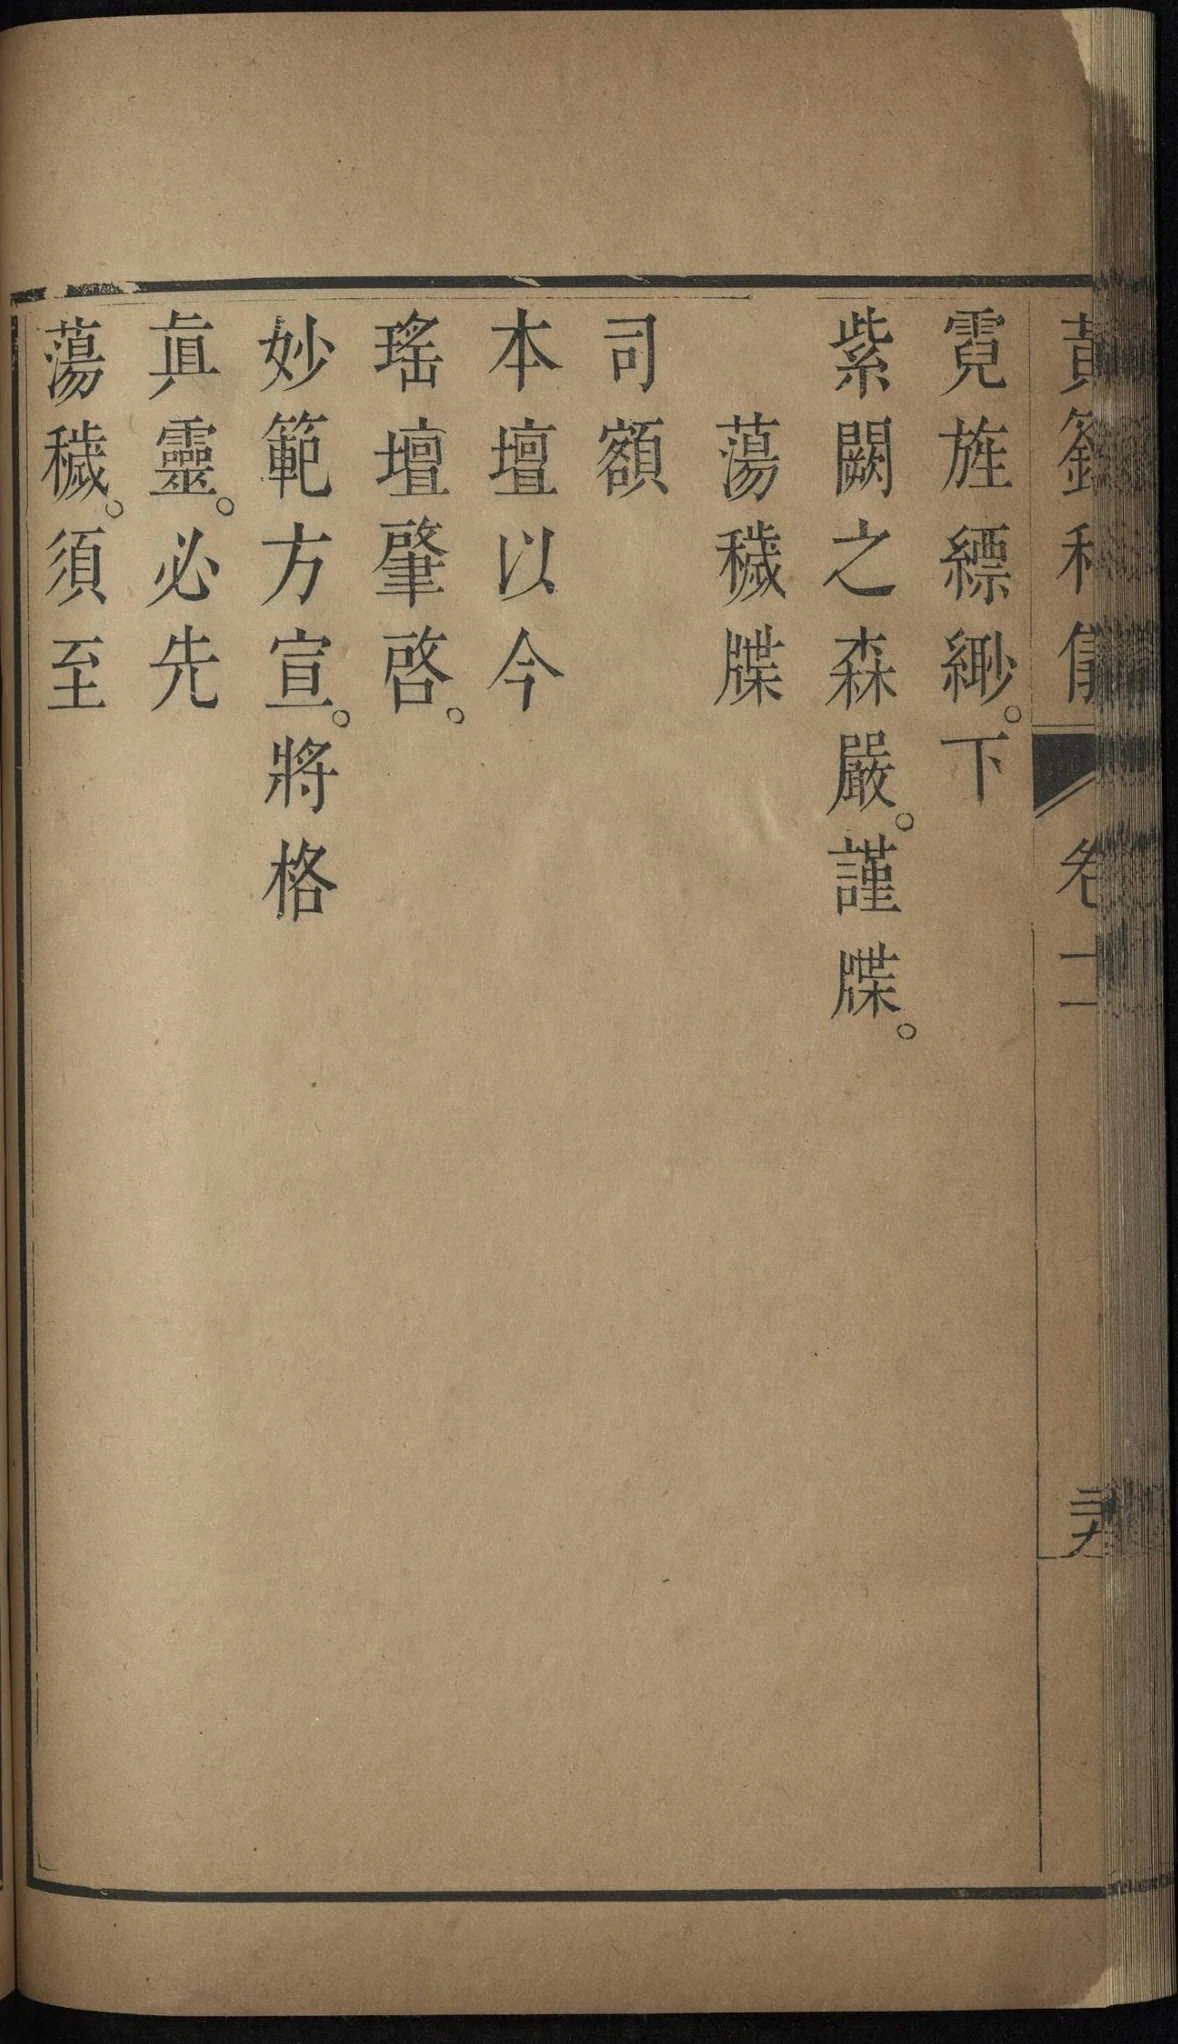 黃籙科儀　卷十二
霓旌縹緲。下
紫闕之森嚴。謹牒。
蕩穢牒
司額
本壇以今
瑤壇肇啓。
妙範方宣。將格
眞靈。必先
蕩穢。須至